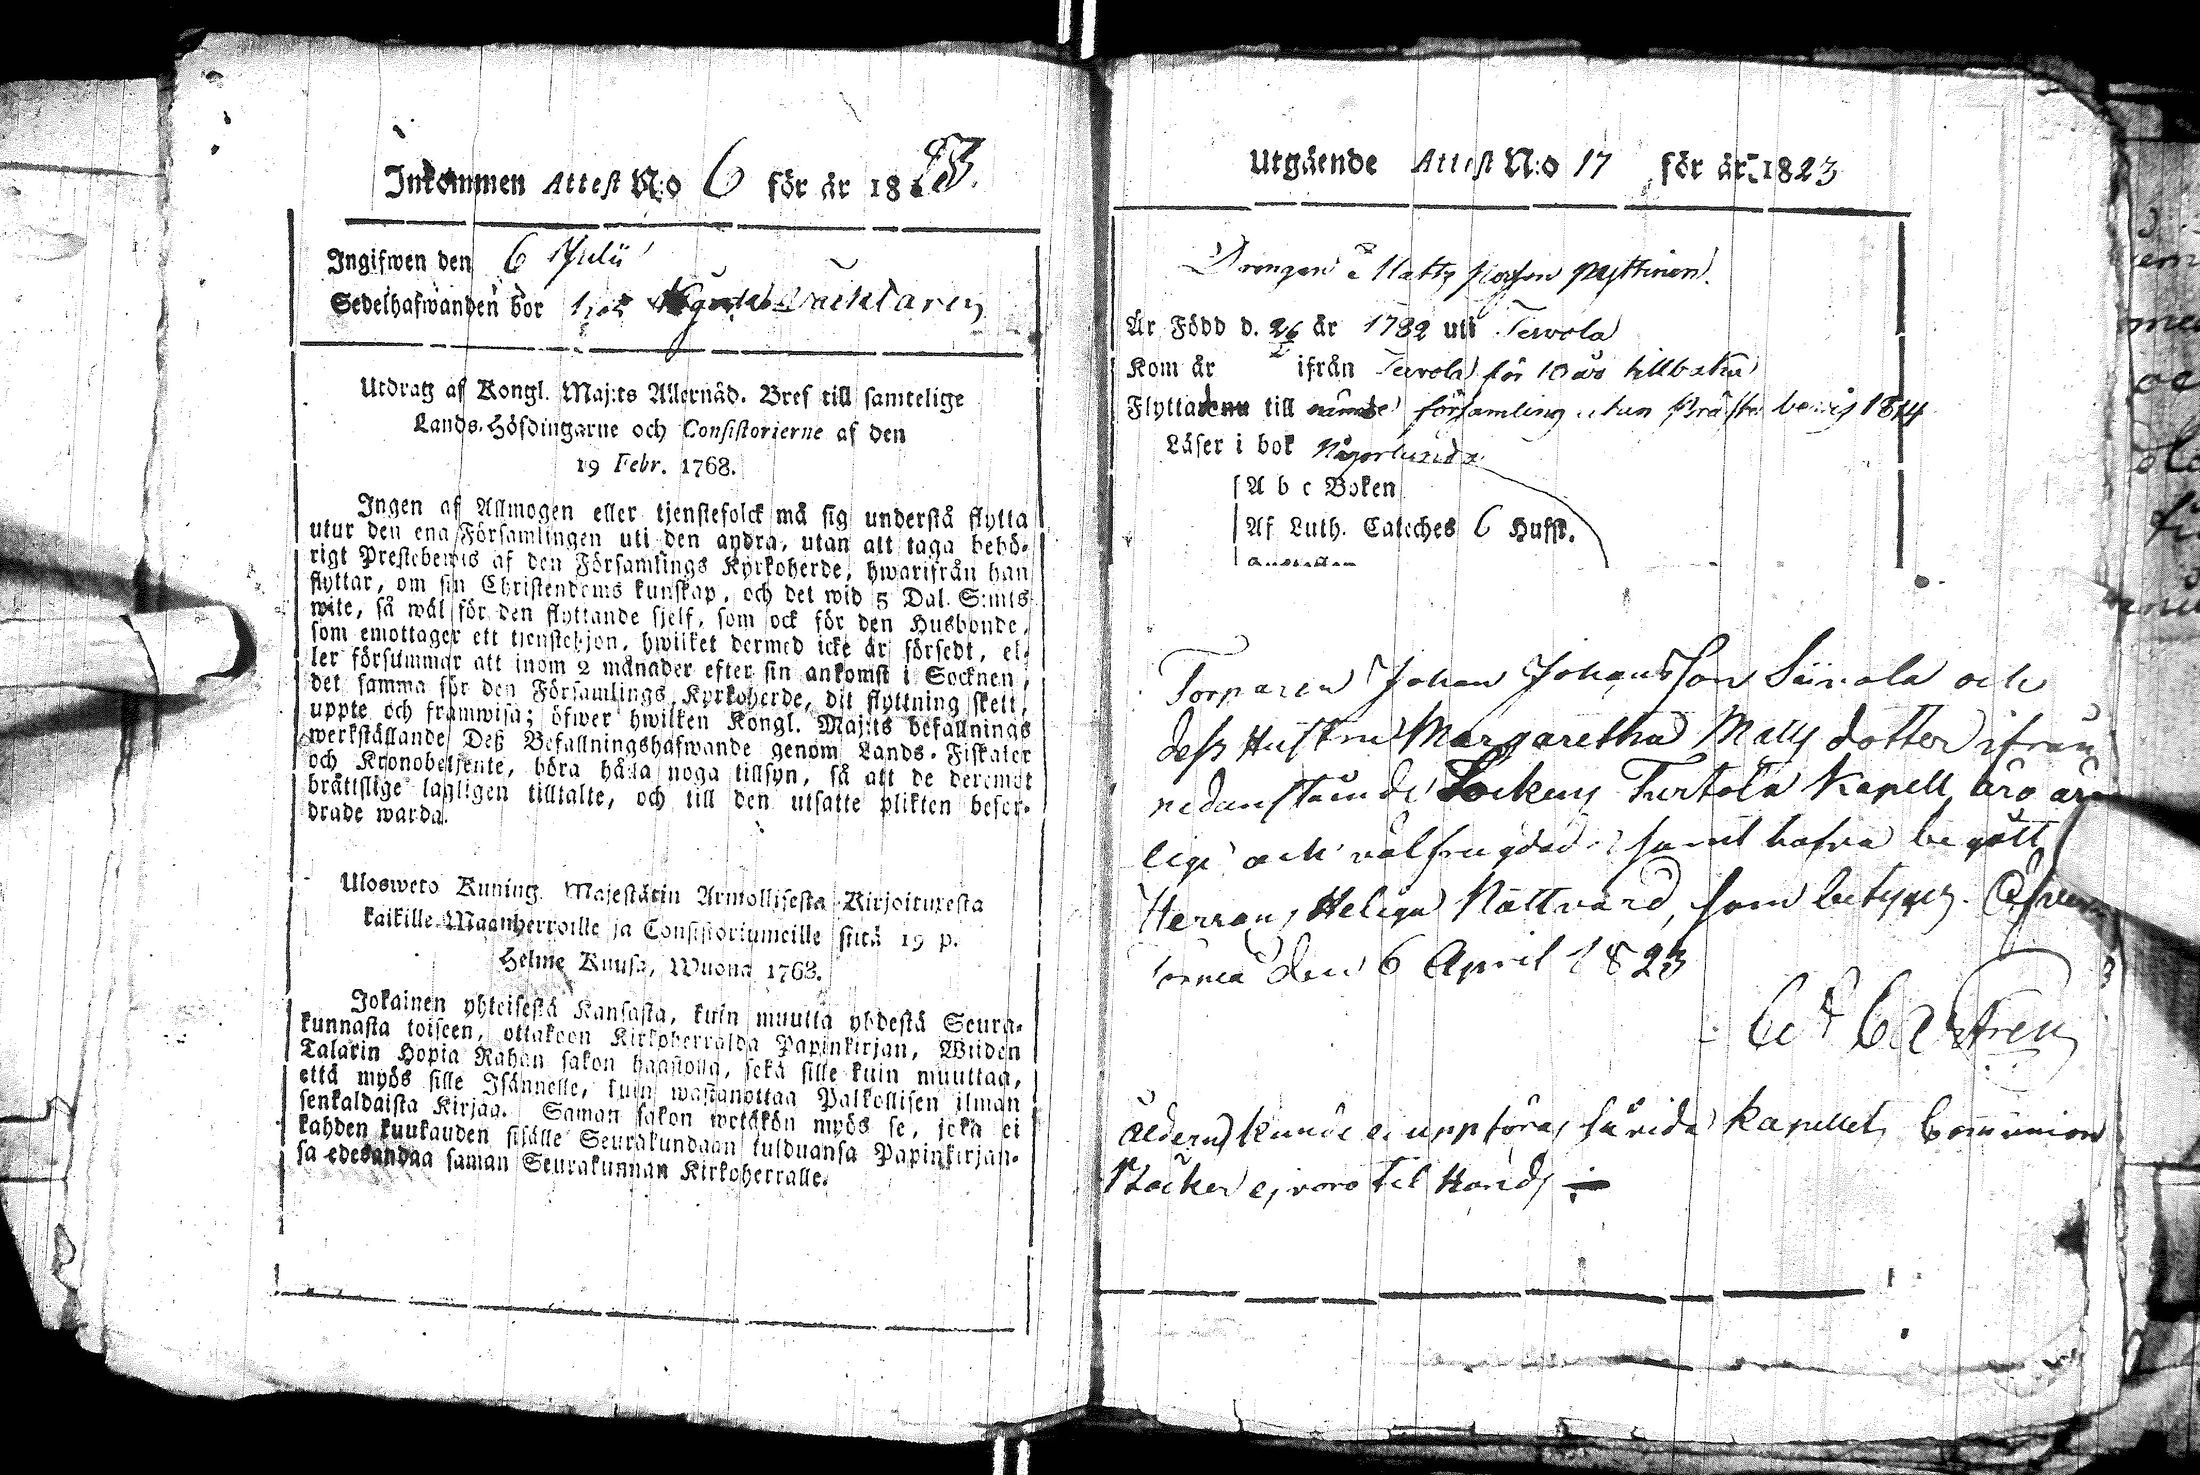 Inkommen Attest N:o 6 för år 1823.
Ingifwen den 6 Julii
Sedelhafwanden bor hos
Utdrag af Kongl. Maj:ts Allernåd. Bref till samtelige
Lands-Höfdingarne och Consistorierne af den
19 Febr. 1768.
Ingen af Allmogen eller tjenstefolck må sig understå flytta
utur den ena Församlingen uti den andra, utan att taga behö-
rigt Prestebewis af den Församlings Kyrkoherde, hwarifrån han
flyttar, om sin Christendoms kunskap, och det wid 5 Dal. S:mts
wite, så wäl för den flyttande sjelf, som ock för den Husbonde,
som emottager ett tjenstehjon, hwilket dermed icke är försedt, el-
ler försummar att inom 2 månader efter sin ankomst i Socknen,
det samma för den Församlings Kyrkoherde, dit flyttning skett,
uppte och framwisa; öfwer hwilken Kongl. Maj:ts befallnings
werkställande Deß Befallningshafwande genom Lands-Fiskaler
och Kronobetjente, böra hålla noga tillsyn, så att de deremot
bråttslige lagligen tilltalte, och till den utsatte plikten befor-
drade warda.
Ulosweto Kuning. Majestätin Armollisesta Kirjoituxesta
kaikille Maanherroille ja Consistoriumeille siitä 19 p.
Helme Kuusa, Wuona 1768.
Jokainen yhteisestä Kansasta, kuin muutta yhdestä Seura-
kunnasta toiseen, ottakoon Kirkoherralda Papinkirjan, Wiiden
Talarin Hopia Rahan sakon haastolla, sekä sille kuin muuttaa,
että myös sille Isännelle, kuin wastanottaa Palkollisen ilman
senkaldaista Kirjaa. Saman sakon wetäkön myös se, joka ei
kahden kuukauden sisälle Seurakundaan tulduansa Papinkirjan-
sa edesandaa saman Seurakunnan Kirkoherralle.
Utgående Attest N:o 17 för år 1823
Drengen Matts Pyttinen.
Är Född d. 26 år 1782 uti Tervola
Kom år ifrån Tervola för 10 års tillbaka
Flyttar till församling utan Präste bevis 1814
Läser i bok Någorlunda
A b c Boken
Af Luth. Cateches 6 Hufst.
Torparen Johan Johansson Siirola och
dess Hustru Margaretha Matts dotter ifrån
nedanstående Sockens Turtola Kapell äro är-
lige och välfrugdade samt hafva begått
Herrans Heliga Nattvard, som betygas. Öfver
Torneå den 6 April 1823
Castren
Åldern kunde ej uppföras, för vida Kapellets Communion
Böcker ej voro til Hands